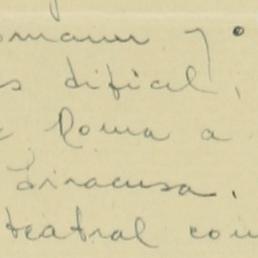 s dificil,
Roma a
Siracusa.
teatral com